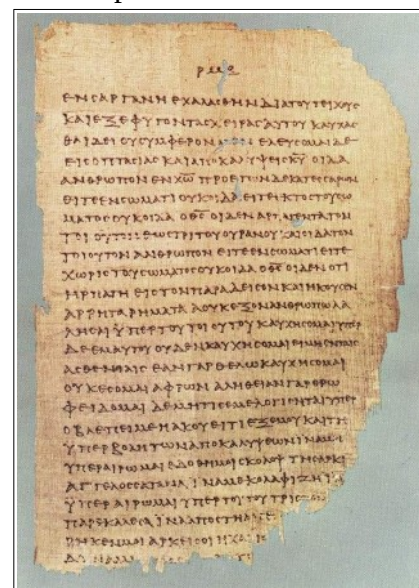 ρμο
ΕΝ ΣΑΡΓΑΝΗ ΕΧΑΛΑΣΘΗΝ ΔΙΑ ΤΟΥ ΤΕΙΧΟΥΣ
ΚΑΙ ΕΞΕΦΥΓΟΝ ΤΑΣ ΧΕΙΡΑΣ ΑΥΤΟΥ ΚΑΥΧΑΣ
ΘΑΙ ΔΕΙ ΟΥ ΣΥΜΦΕΡΟΝ ΕΛΕΥΣΟΜΑΙ ΔΕ
ΕΙΣ ΟΠΤΑΣΙΑΣ ΚΑΙ ΑΠΟΚΑΛΥΨΕΙΣ ΚΥ ΟΙΔΑ
ΑΝΘΡΩΠΟΝ ΕΝ ΧΩ ΠΡΟ ΕΤΩΝ ΔΕΚΑΤΕΣΣΑΡΩΝ
ΕΙΤΕ ΕΝ ΣΩΜΑΤΙ ΟΥΚ ΟΙΔΑ ΕΙΤΕ ΕΚΤΟΣ ΤΟΥ ΣΩ
ΜΑΤΟΣ ΟΥΚ ΟΙΔΑ Ο ΘΣ ΟΙΔΕΝ ΑΡΠΑΓΕΝΤΑ ΤΟΝ
ΤΟΙΟΥΤΟΝ ΕΩΣ ΤΡΙΤΟΥ ΟΥΡΑΝΟΥ ΚΑΙ ΟΙΔΑ ΤΟΝ
ΤΟΙΟΥΤΟΝ ΑΝΘΡΩΠΟΝ ΕΙΤΕ ΕΝ ΣΩΜΑΤΙ ΕΙΤΕ
ΧΩΡΙΣ ΤΟΥ ΣΩΜΑΤΟΣ ΟΥΚ ΟΙΔΑ Ο ΘΣ ΟΙΔΕΝ ΟΤΙ
ΗΡΠΑΓΗ ΕΙΣ ΤΟΝ ΠΑΡΑΔΕΙΣΟΝ ΚΑΙ ΗΚΟΥΣΕΝ
ΑΡΡΗΤΑ ΡΗΜΑΤΑ Α ΟΥΚ ΕΞΟΝ ΑΝΘΡΩΠΩ ΛΑ
ΛΗΣΑΙ ΥΠΕΡ ΤΟΥ ΤΟΙΟΥΤΟΥ ΚΑΥΧΗΣΟΜΑΙ ΥΠΕΡ
ΔΕ ΕΜΑΥΤΟΥ ΟΥΔΕΝ ΚΑΥΧΗΣΟΜΑΙ ΕΙ ΜΗ ΕΝ ΤΑΙΣ
ΑΣΘΕΝΕΙΑΙΣ ΕΑΝ ΓΑΡ ΘΕΛΩ ΚΑΥΧΗΣΟΜΑΙ
ΟΥΚ ΕΣΟΜΑΙ ΑΦΡΩΝ ΑΛΗΘΕΙΑΝ ΓΑΡ ΕΡΩ
ΦΕΙΔΟΜΑΙ ΔΕ ΜΗ ΤΙΣ ΕΜΕ ΛΟΓΙΣΗΤΑΙ ΥΠΕΡ
Ο ΒΛΕΠΕΙ ΜΕ Η ΑΚΟΥΕΙ ΤΙ ΕΞ ΕΜΟΥ ΚΑΙ ΤΗ
ΥΠΕΡΒΟΛΗ ΤΩΝ ΑΠΟΚΑΛΥΨΕΩΝ ΙΝΑ ΜΗ
ΥΠΕΡΑΙΡΩΜΑΙ ΕΔΟΘΗ ΜΟΙ ΣΚΟΛΟΨ ΤΗ ΣΑΡΚΙ
ΑΓΓΕΛΟΣ ΣΑΤΑΝΑ ΙΝΑ ΜΕ ΚΟΛΑΦΙΖΗ
ΥΠΕΡΑΙΡΩΜΑΙ ΥΠΕΡ ΤΟΥΤΟΥ ΤΡΙΣ
ΠΑΡΕΚΑΛΕΣΑ ΙΝΑ ΑΠΟΣΤΗ
ΡΗΚΕΝ ΜΟΙ ΑΡΚΕΙ ΣΟΙ Η ΧΑ